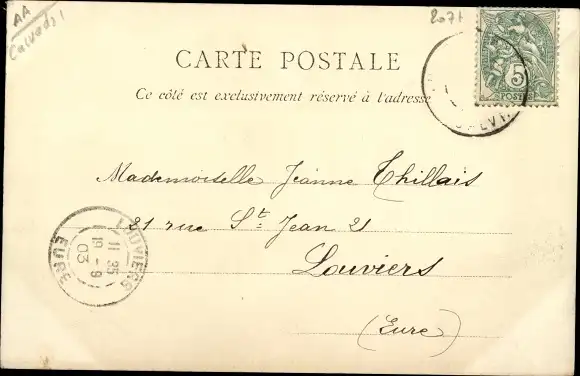 AA
Calvados
2071
CARTE POSTALE
Ce côté est exclusivement réservé à l'adresse
5
POSTES
Mademoiselle Jeanne Thillais
21 rue St Jean 21
Louviers
(Eure)
LOUVIERS
11 35
19 - 9
03
EURE